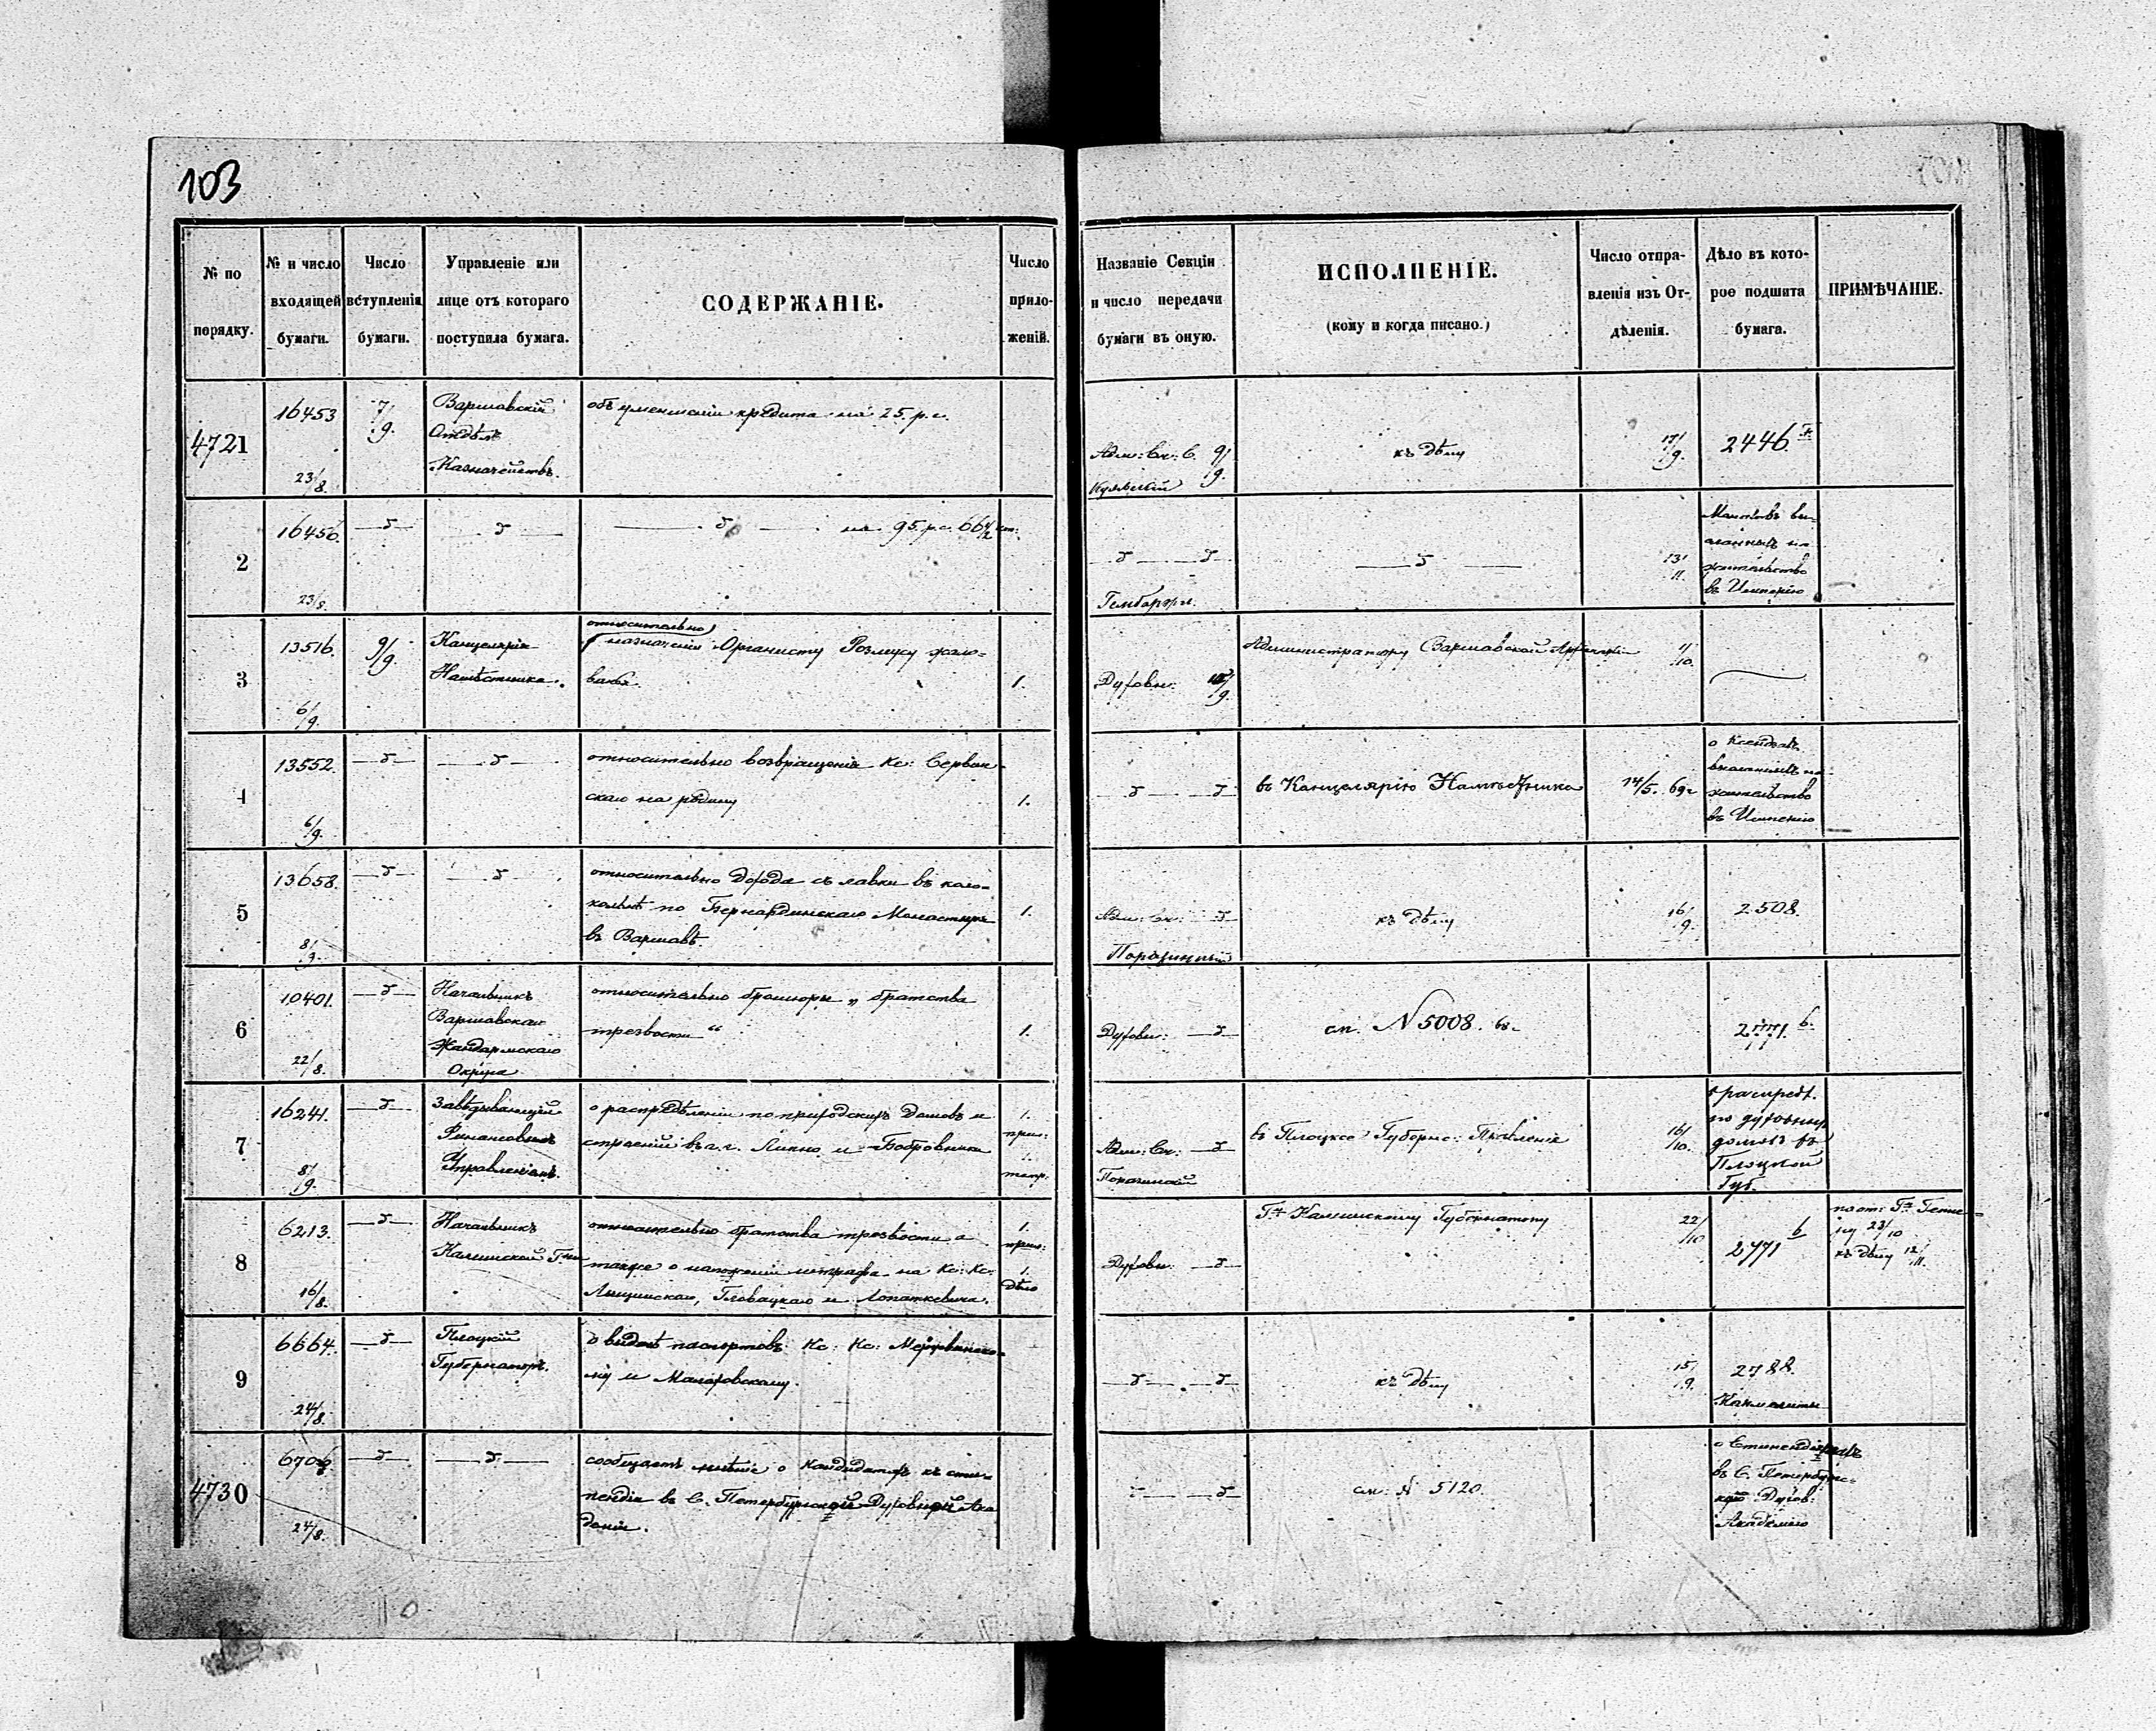 103
№ по порядку.
№ и число входящей бумаги.
Число вступленія бумаги.
Управленіе или лице отъ котораго поступила бумага.
СОДЕРЖАНІЕ.
Число приложеній.
Названіе Секціи и число передачи бумаги въ оную.
ИСПОЛНЕНІЕ.
(кому и когда писано.)
Число отправленія изъ Отдѣленія.
Дѣло въ которое подшита бумага.
ПРИМѢЧАНІЕ.
4721
16453
23/8.
7/9.
Варшавскій
Отдѣлъ
Казначействъ.
объ уменьшеніи кредита на 25. р. с.
Адм: Ск: С. 9/9.
къ дѣлу
17/9.
2446
2
16456.
23/8.
на 95. р. с. 66 1/2 коп:
13/11.
жительство
въ Имперію
3
13516.
6/9.
9/9.
Канцелярія
Намѣстника.
относительно
назначенія Органисту Розмусу жало-
ванья.
1.
Духовн:
Администратору Варшавской Архіепархіи
1/10.
4
13552.
6/9.
относительно возвращенія Кс: Серван-
скаго на родину
1.
въ Канцелярію Намѣстника
14/5. 69 г
о Ксендзахъ
высланныхъ на
жительство
въ Имперію
5
13658.
8/9.
относительно дохода съ лавки въ коло-
кольнѣ по Бернардинскаго Монастыря
въ Варшавѣ.
1.
Адм: Ск:
къ дѣлу
16/9.
2508.
6
10401.
22/8.
Начальникъ
Варшавскаго
Жандармскаго
Округа
относительно брошюры „братства
трезвости“
1.
Духовн:
см. N 5008. 68 г
2771. b.
7
16241.
8/9.
Завѣдывающій
Финансовымъ
Управленіемъ.
о распредѣленіи поприходскихъ домовъ и
строеній въ г. г. Липно и Бобровники
1.
прил:
1.
Адм: Ск:
въ Плоцкое Губернс: Правленіе
16/10.
о распред.
по духовныхъ
домовъ въ
Плоцкой
Губ.
8
6213.
16/8.
Начальникъ
Калишской Губ
относительно братства трезвости а
также о наложеніи штрафа на Кс: Кс:
Лыщинскаго, Гловацкаго и Лопаткевича.
1.
прил:
1.
дѣло
Духовн:
Г-ну Калишскому Губернатору
22/10
2771 b
23/10
къ дѣлу 12/11.
9
6664.
24/8.
Плоцкій
Губернаторъ.
о выдачѣ паспортовъ Кс: Кс: Мержвинско-
му и Малаховскому.
къ дѣлу
15/9.
2788.
4730
6706
24/8.
сообщаетъ мнѣніе о Кандидатахъ къ сти-
пендіи въ С. Петербургской Духовной Ака
деміи.
см: N 5120.
о Стипендіяхъ
въ С. Петербургс-
кую Духов:
Академію